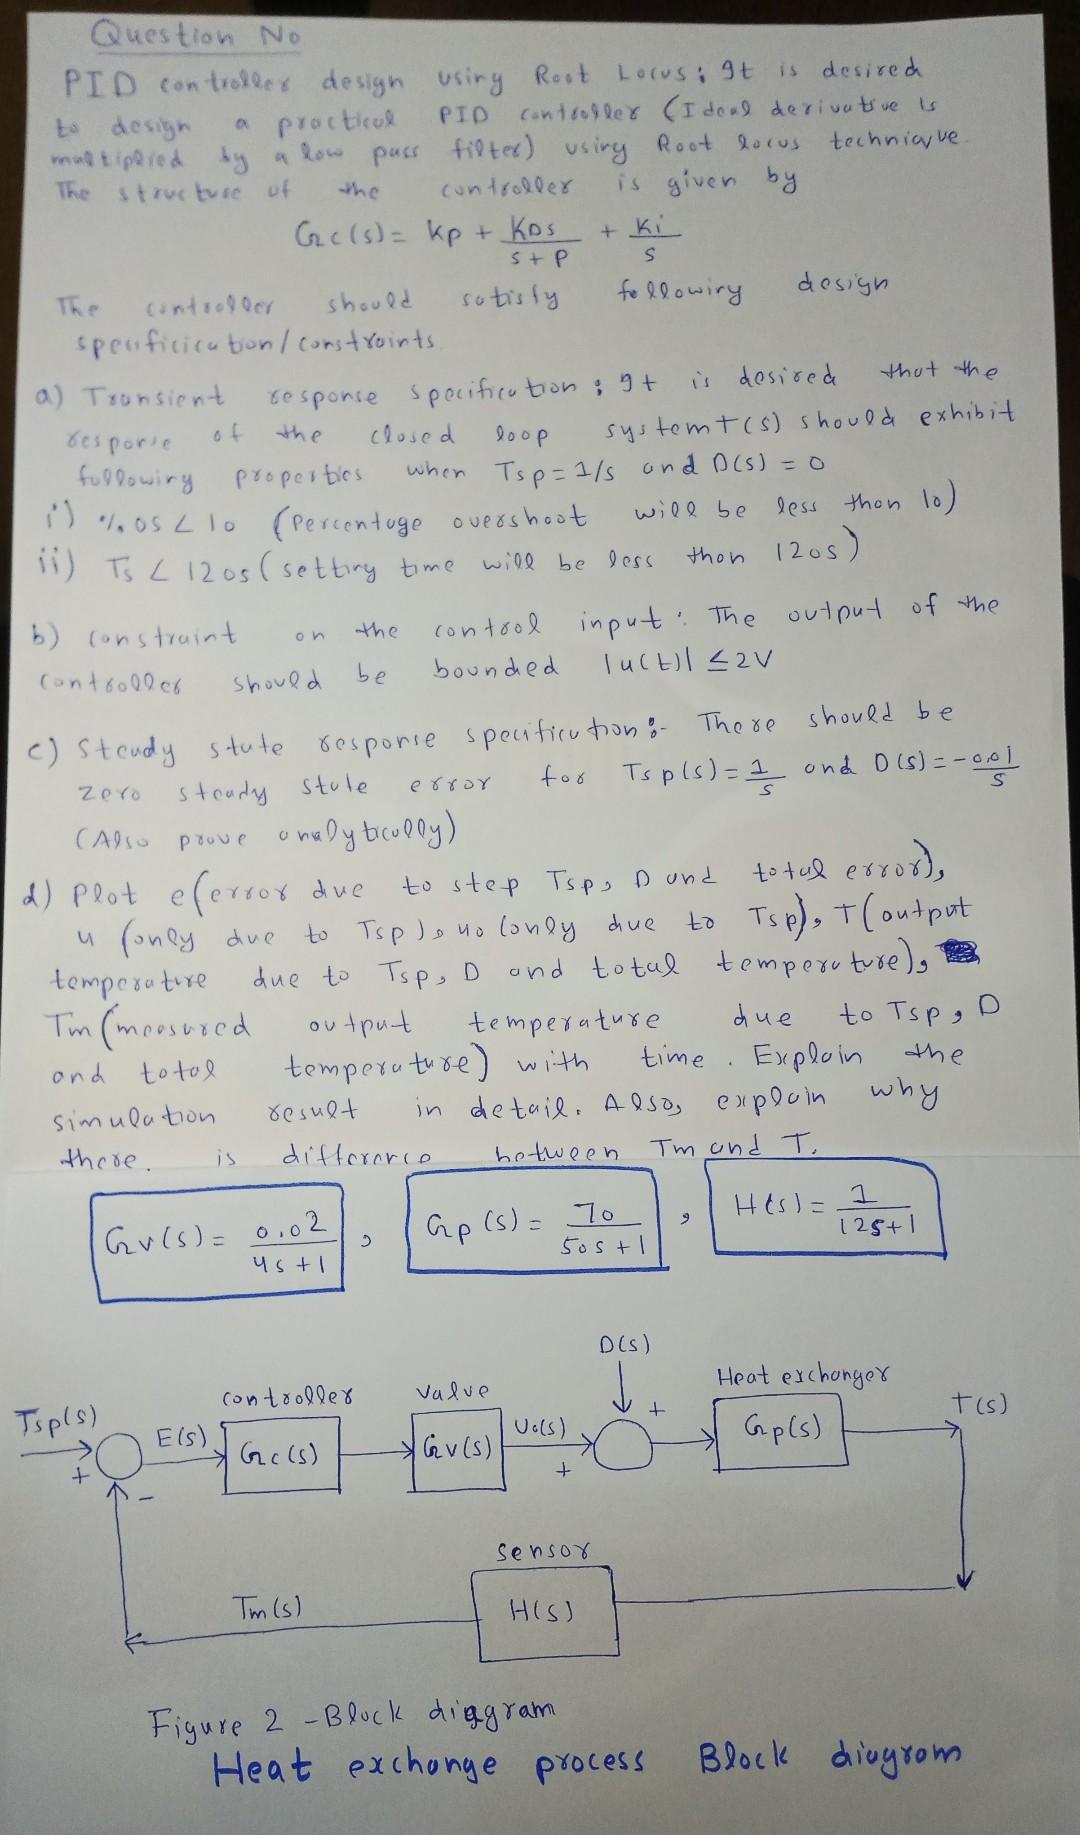 Question No
PID controller design using Root Locus; It is desired
to design a practical PID controller (Ideal derivative is
multiplied by a low pass filter) using Root locus technique.
The structure of the controller is given by
Gc(s) = Kp + KDs/(s+P) + Ki/s
The controller should satisfy following design
specification/constraints.
a) Transient response specification: It is desired that the
response of the closed loop system T(s) should exhibit
following properties when Tsp=1/s and D(s) = 0
i) %OS < 10 (Percentage overshoot will be less than 10)
ii) Ts < 120s (setting time will be less than 120s)
b) constraint on the control input: The output of the
controller should be bounded |u(t)| ≤ 2V
c) Steady state response specification:- There should be
zero steady state error for Tsp(s) = 1/s and D(s) = -0.01/s
(Also prove analytically)
d) Plot e(error due to step Tsp, D and total error),
u (only due to Tsp), uo (only due to Tsp), T(output
temperature due to Tsp, D and total temperature),
Tm (measured output temperature due to Tsp, D
and total temperature) with time. Explain the
simulation result in detail. Also, explain why
there is difference between Tm and T.
Gv(s) = 0.02/(4s+1) , Gp(s) = 70/(50s+1) , H(s) = 1/(12s+1)
D(s)
controller valve Heat exchanger
Tsp(s) E(s) Gc(s) Gv(s) Uo(s) + Gp(s) T(s)
+ - +
sensor
Tm(s) H(s)
Figure 2 - Block diagram
Heat exchange process Block diagram